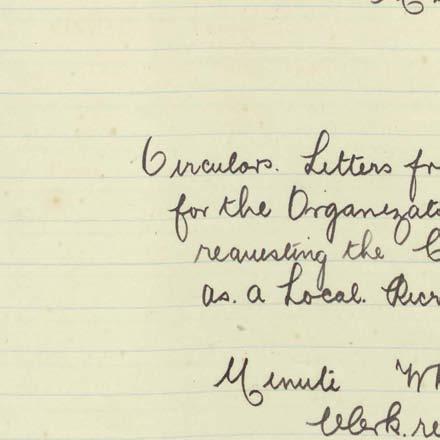 Circulars. Letters fr
for the Organizat
requesting the C
as. a Local. Recr
Minute Wh
Clerk. re